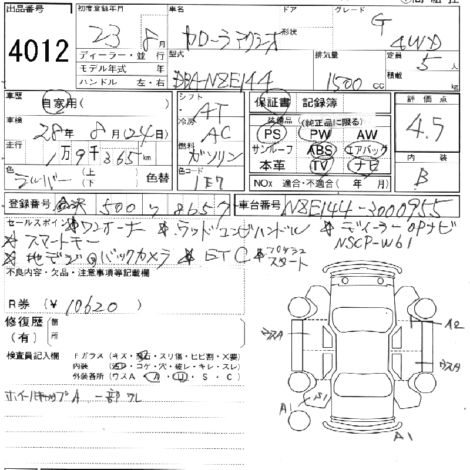 出品番号 4012
初度登録年月 23年 8月
車名 カローラアクシオ
ドア 形状
グレード G 4WD
ディーラー・並行
モデル年式 年
ハンドル 左・右
型式 DBA-NZE144
排気量 1500 cc
定員 5人
積載 kg
車歴 自家用( )
車検 28年 8月(24日)
走行 1万9千365km
シフト AT
冷房 AC
燃料 ガソリン
保証書 記録簿
装備品(純正品に限る)
PS PW AW
サンルーフ ABS エアバッグ
本革 TV ナビ
NOx 適合・不適合( 年 月)
評価点 4.5
内装 B
色 シルバー (上 下) 色替
色コード 1E7
登録番号 500 8657
車台番号 NZE144-3000955
セールスポイント ワンオーナー ※ウッドコンビハンドル ※ディーラーOPナビ
NSCP-W61
※スマートキー
※地デジ ※バックカメラ ※ETC ※プッシュスタート
不良内容・欠品・注意事項等記載欄
R券(¥ 10620 )
修復歴(有) [箇所]
検査員記入欄 Fガラス(キズ・飛石・スリ傷・ヒビ割・X要)
内装(汚・コゲ・穴・破レ・キレ・スレ)
外装番所(ウスA・A・U・S・C)
ホイールキャップA 一部ワレ
ウスA A2
ウスA
A1 A1